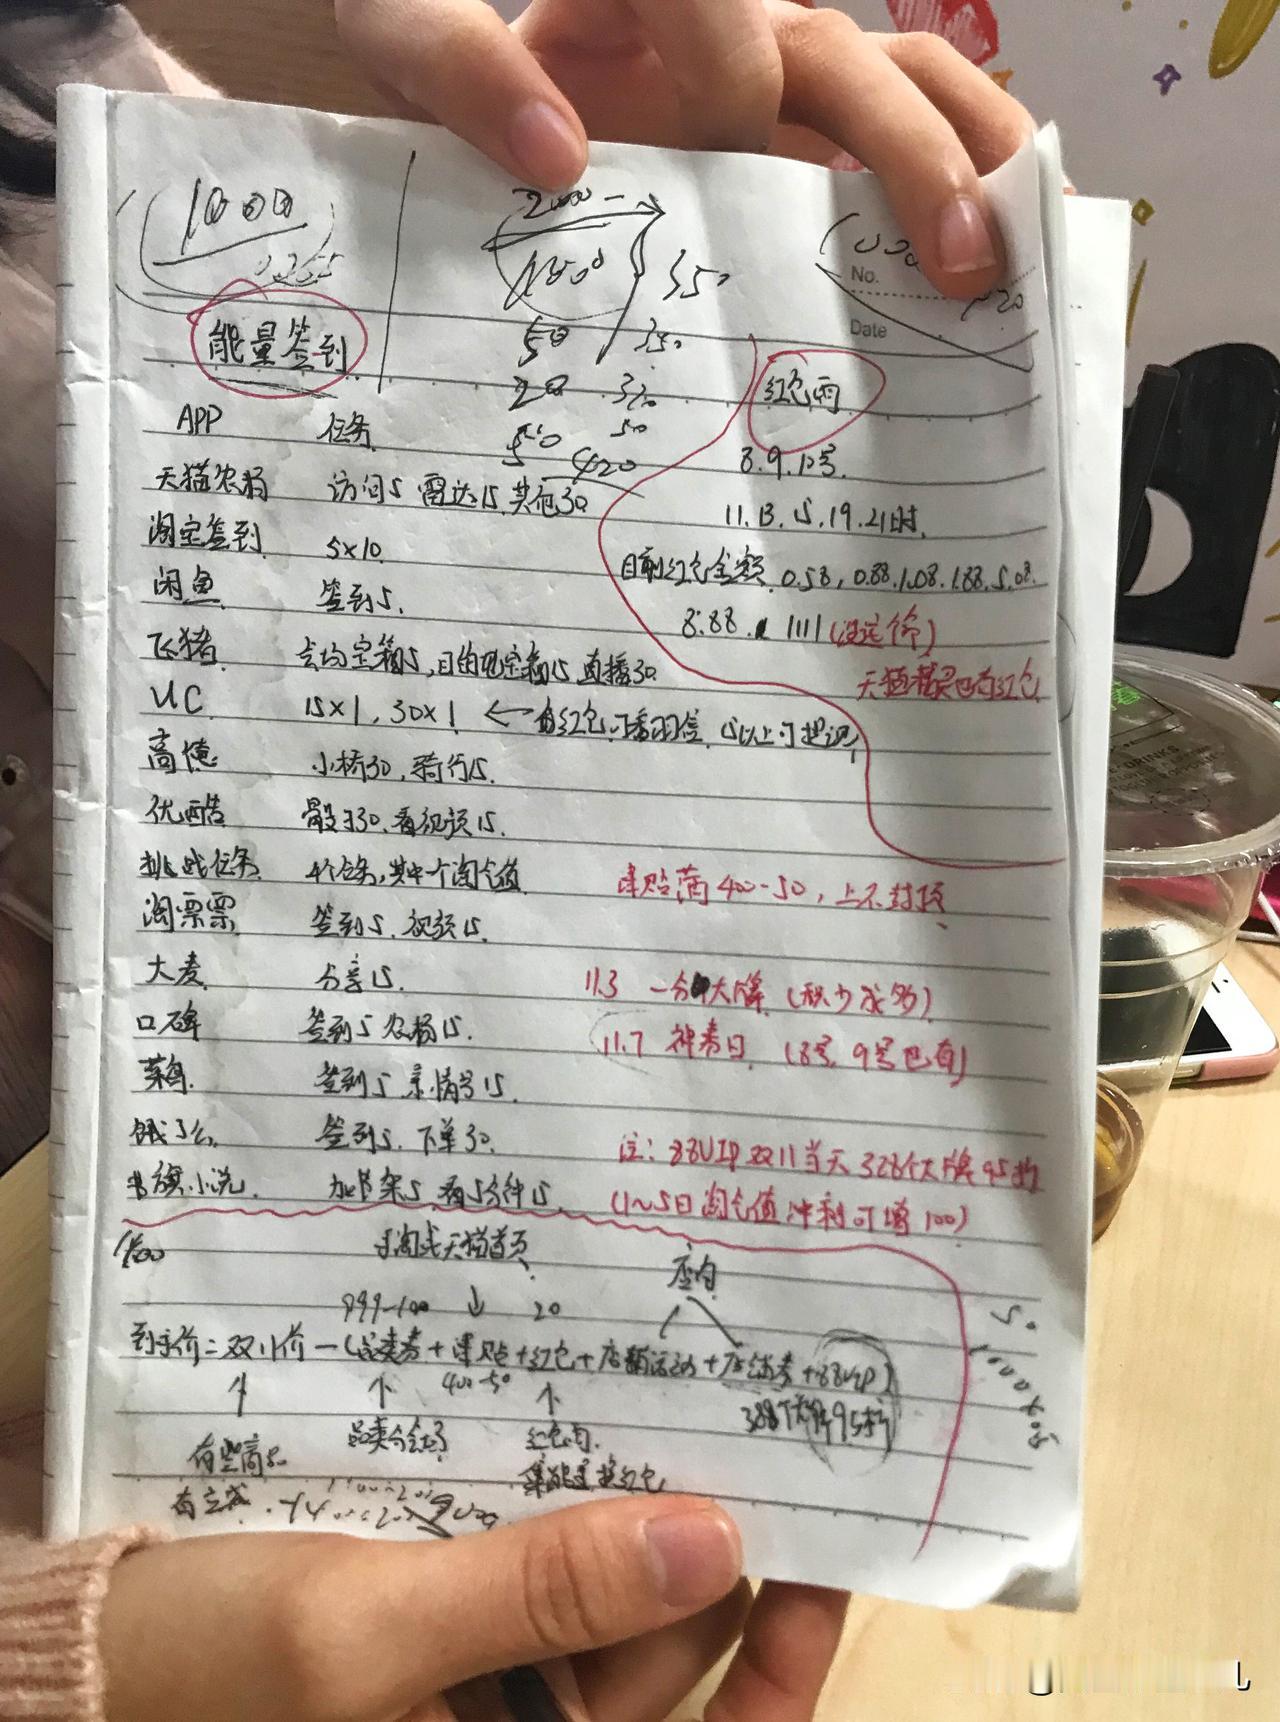 1000
2000
1500
350
No.
Date
20
能量签到
50
350
红包雨
20
320
APP 任务
50
50
420
8.9.10号.
天猫农场 访问5 雷达15.其他30.
11.13.15.19.21时.
淘宝签到. 5×10.
目前红包金额 0.58, 0.88.1.08.1.88.5.08.
闲鱼. 签到5.
8.88. 1111
飞猪. 宝箱5,目的地宝箱15 直播30.
天猫精灵也有红包
UC. 15×1, 30×1 ← 有红包 以上可提现
高德 小桥30, 骑行15.
优酷 骰子30.看视频15.
挑战任务. 4个任务,其中一个淘气值
津贴满400-50, 上不封顶、
淘票票. 签到5.视频15.
大麦. 分享15.
11.3 一分钟大牌(积少成多)
口碑 签到5 农场15.
11.7 神券日 (8号,9号也有)
菜鸟. 签到5 亲情号15.
饿了么. 签到5.下单30.
注: 88VIP双11当天 328个大牌95折
书旗小说. 加书架5.看5分钟15
(1~5日淘气值冲刺可增100)
手淘或天猫首页
店内
899-100 ↓ 20
到手价=双11价-(品类券+津贴+红包+店铺活动+店铺券+88VIP)
400-50
388个大牌95折
品类会场
红包雨.
有些商品
集能量换红包
有立减.